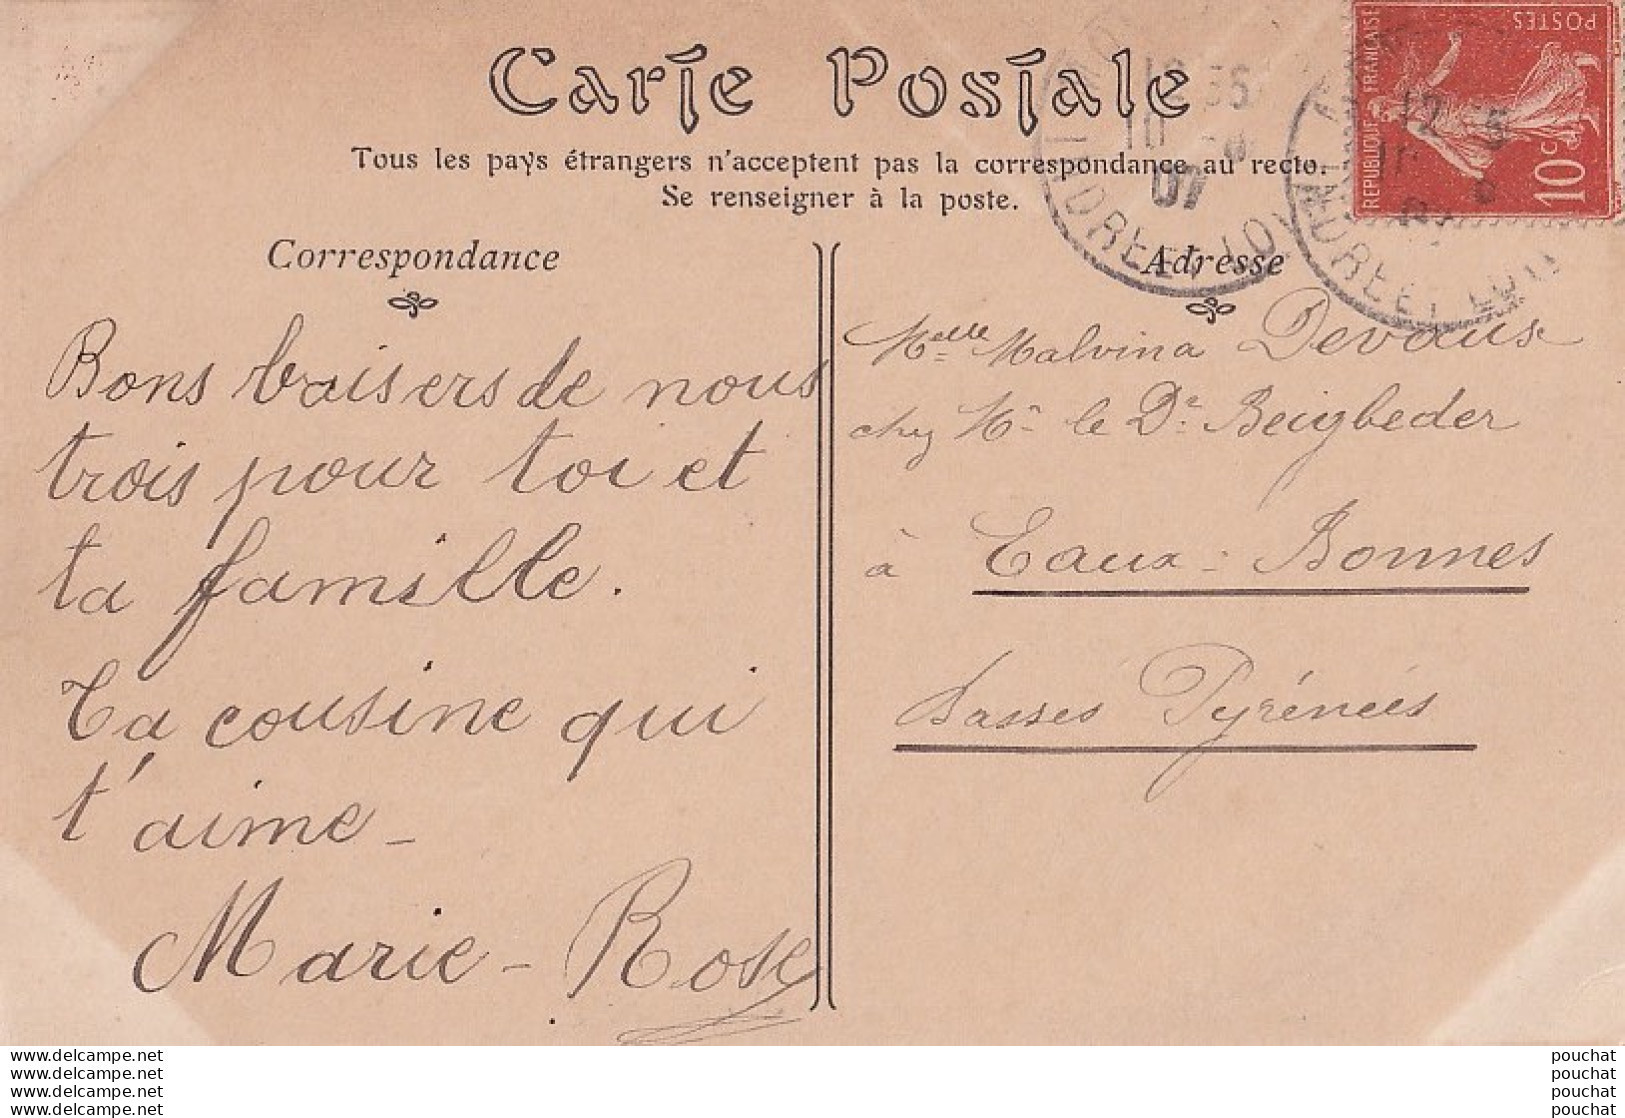 Carte Postale
Tous les pays étrangers n'acceptent pas la correspondance au recto.
Se renseigner à la poste.
Correspondance
Bons baisers de nous
trois pour toi et
ta famille.
Ta cousine qui
t'aime -
Marie-Rose
Adresse
Melle Malvina Devaux
chez Mr le Dr Beigbeder
à Eaux-Bonnes
Basses Pyrénées
REPUBLIQUE FRANÇAISE
POSTES
10c
07
INDRE ET LOIRE
www.delcampe.net
www.delcampe.net
www.delcampe.net
www.delcampe.net
pouchat
pouchat
pouchat
pouchat